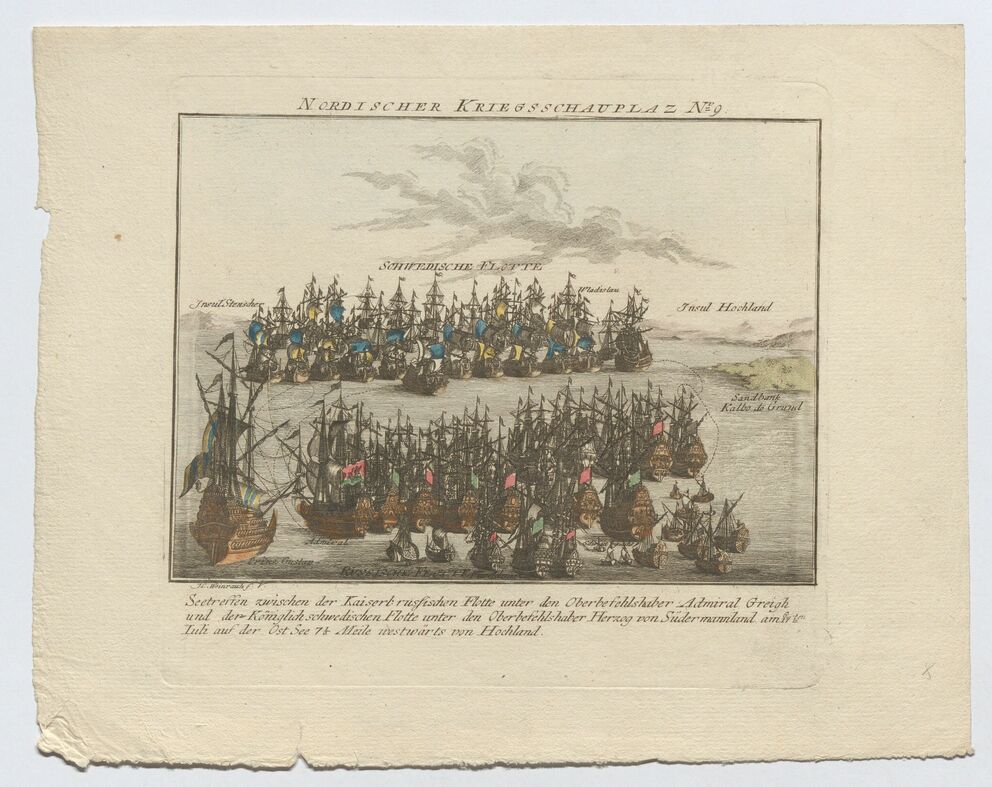 NORDISCHER KRIEGSSCHAUPLAZ Nro 9.
SCHWEDISCHE FLOTTE
Wladislau
Insul Stenscher
Insul Hochland
Sandbank
Kalbo. de Grund
Admiral
Prins Gustav
RUSSISCHE FLOTTE
Seetreffen zwischen der Kaiserl: russischen Flotte unter den Oberbefehlshaber Admiral Greigh
und der Königlich schwedischen Flotte unter den Oberbefehlshaber Herzog von Südermannland am
Iuli auf der Ost See 7½ Meile westwärts von Hochland.